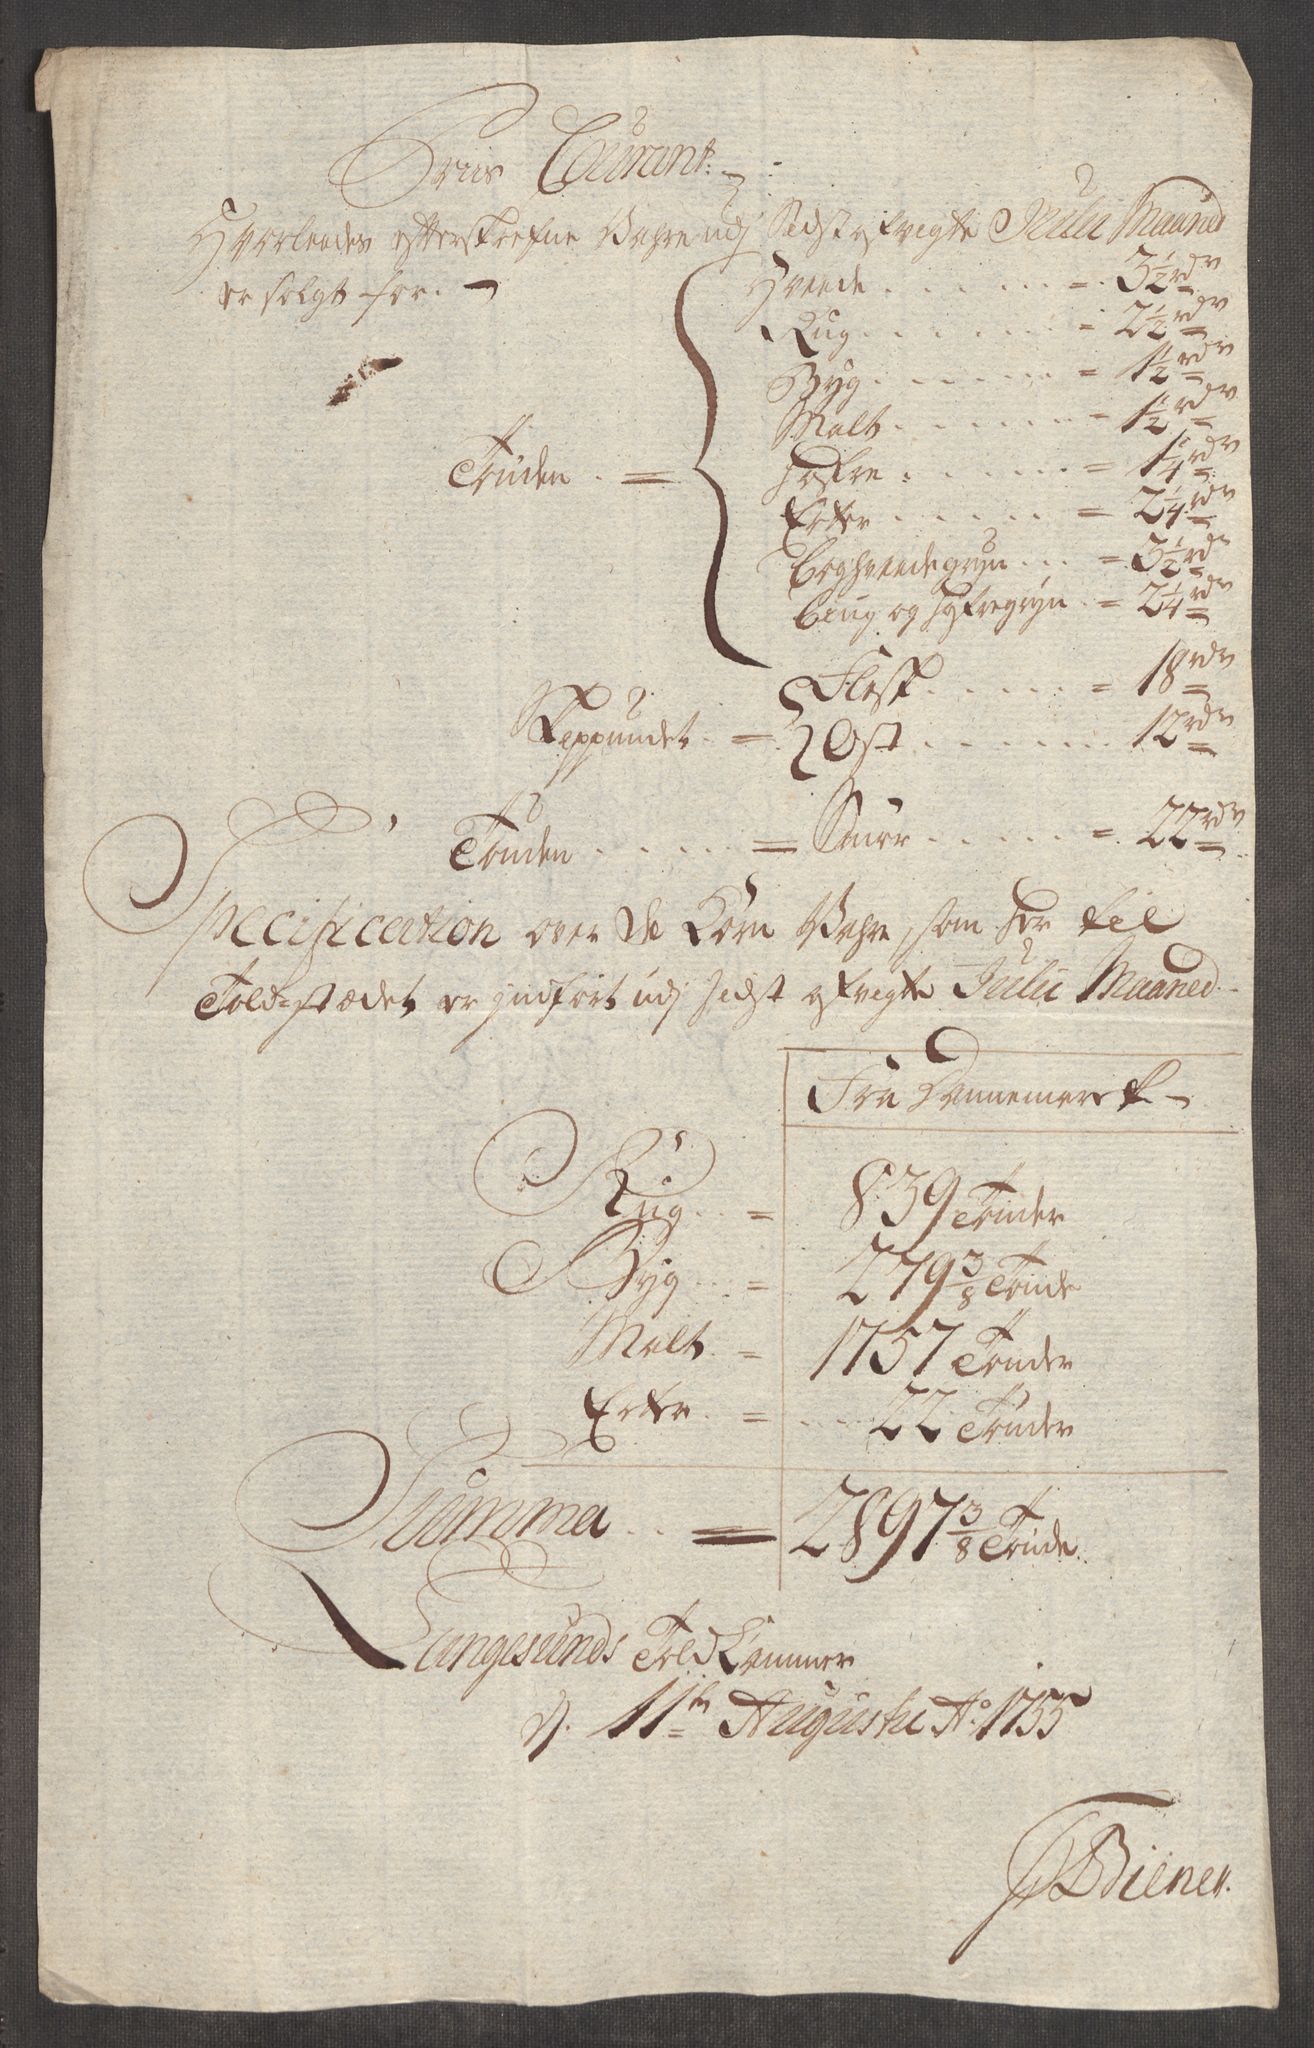 Priis Courant
Hvorleedes efterskrefne Vahre udj Sidst afvigte Julii Maaned
er solgt for.
Hvede = 3 1/2 rdr
Rug = 2 1/2 rdr
Byg = 1 1/2 rdr
Malt = 1 1/2 rdr
Tönden = Hafre = 1 1/4 rdr
Erter = 2 1/4 rdr
Boghveedegryn = 3 1/2 rdr
Biug og Hafregryn = 2 1/4 rdr
Flesk = 18 rdr
Skeppundet = Ost 12 rdr
Tönden = Smör = 22 rdr
Specification over De Korn Vahre, som her til
Told-stædet er jndfört udj sidst afvigte Julii Maaned
Fra Dannemark
Rug = 839 Tönder
Byg = 279 3/8 Tönde
Malt = 1757 Tönder
Erter = 22 Tönder
Summa = 2897 3/8 Tönde
Langesunds Told Kammer
d. 11te Augusti Ao 1755
Biener